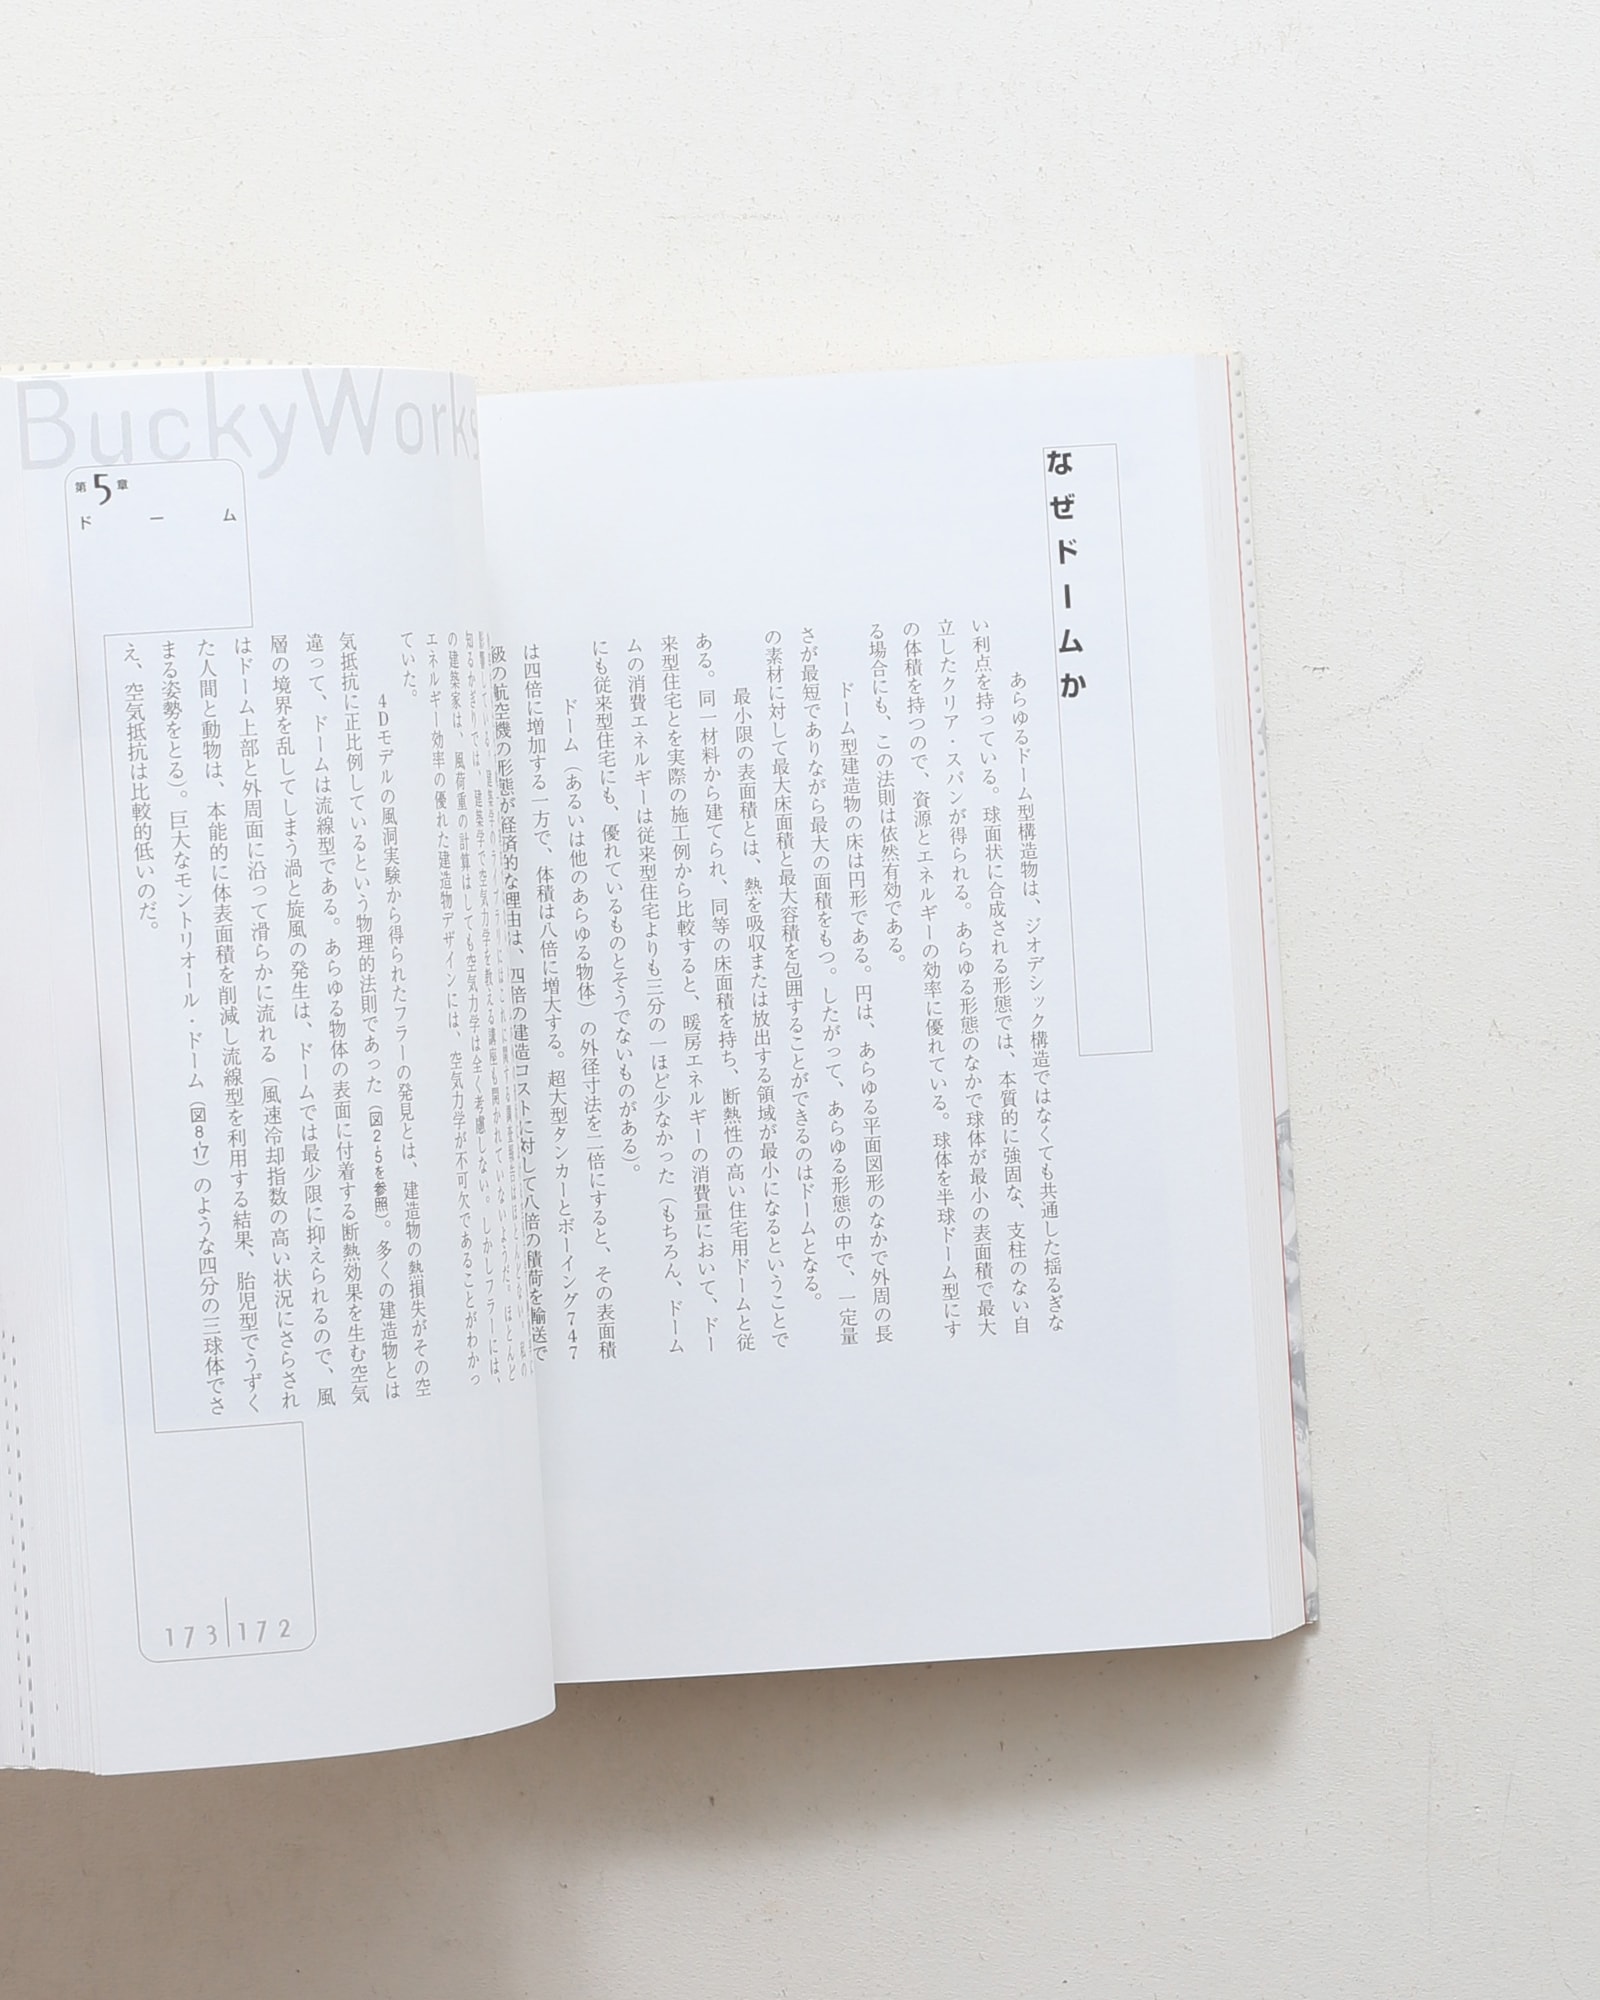 なぜドームか
あらゆるドーム型構造物は、ジオデシック構造ではなくても共通した揺るぎな
い利点を持っている。球面状に合成される形態では、本質的に強固な、支柱のない自
立したクリア・スパンが得られる。あらゆる形態のなかで球体が最小の表面積で最大
の体積を持つので、資源とエネルギーの効率に優れている。球体を半球ドーム型にす
る場合にも、この法則は依然有効である。
ドーム型建造物の床は円形である。円は、あらゆる平面図形のなかで外周の長
さが最短でありながら最大の面積をもつ。したがって、あらゆる形態の中で、一定量
の素材に対して最大床面積と最大容積を包囲することができるのはドームとなる。
最小限の表面積とは、熱を吸収または放出する領域が最小になるということで
ある。同一材料から建てられ、同等の床面積を持ち、断熱性の高い住宅用ドームと従
来型住宅とを実際の施工例から比較すると、暖房エネルギーの消費量において、ドー
ムの消費エネルギーは従来型住宅よりも三分の一ほど少なかった（もちろん、ドーム
にも従来型住宅にも、優れているものとそうでないものがある）。
ドーム（あるいは他のあらゆる物体）の外径寸法を二倍にすると、その表面積
は四倍に増加する一方で、体積は八倍に増大する。超大型タンカーとボーイング747
級の航空機の形態が経済的な理由は、四倍の建造コストに対して八倍の積荷を輸送で
知るかぎりでは、建築学で空気力学を教える講座も開かれていないようだ。ほとんど
の建築家は、風荷重の計算はしても空気力学は全く考慮しない。しかしフラーには、
エネルギー効率の優れた建造物デザインには、空気力学が不可欠であることがわかっ
ていた。
4Dモデルの風洞実験から得られたフラーの発見とは、建造物の熱損失がその空
気抵抗に正比例しているという物理的法則であった（図2-5を参照）。多くの建造物とは
違って、ドームは流線型である。あらゆる物体の表面に付着する断熱効果を生む空気
層の境界を乱してしまう渦と旋風の発生は、ドームでは最少限に抑えられるので、風
はドーム上部と外周面に沿って滑らかに流れる（風速冷却指数の高い状況にさらされ
た人間と動物は、本能的に体表面積を削減し流線型を利用する結果、胎児型でうずく
まる姿勢をとる）。巨大なモントリオール・ドーム（図8-17）のような四分の三球体でさ
え、空気抵抗は比較的低いのだ。
BuckyWorks
第5章
ドーム
173 172